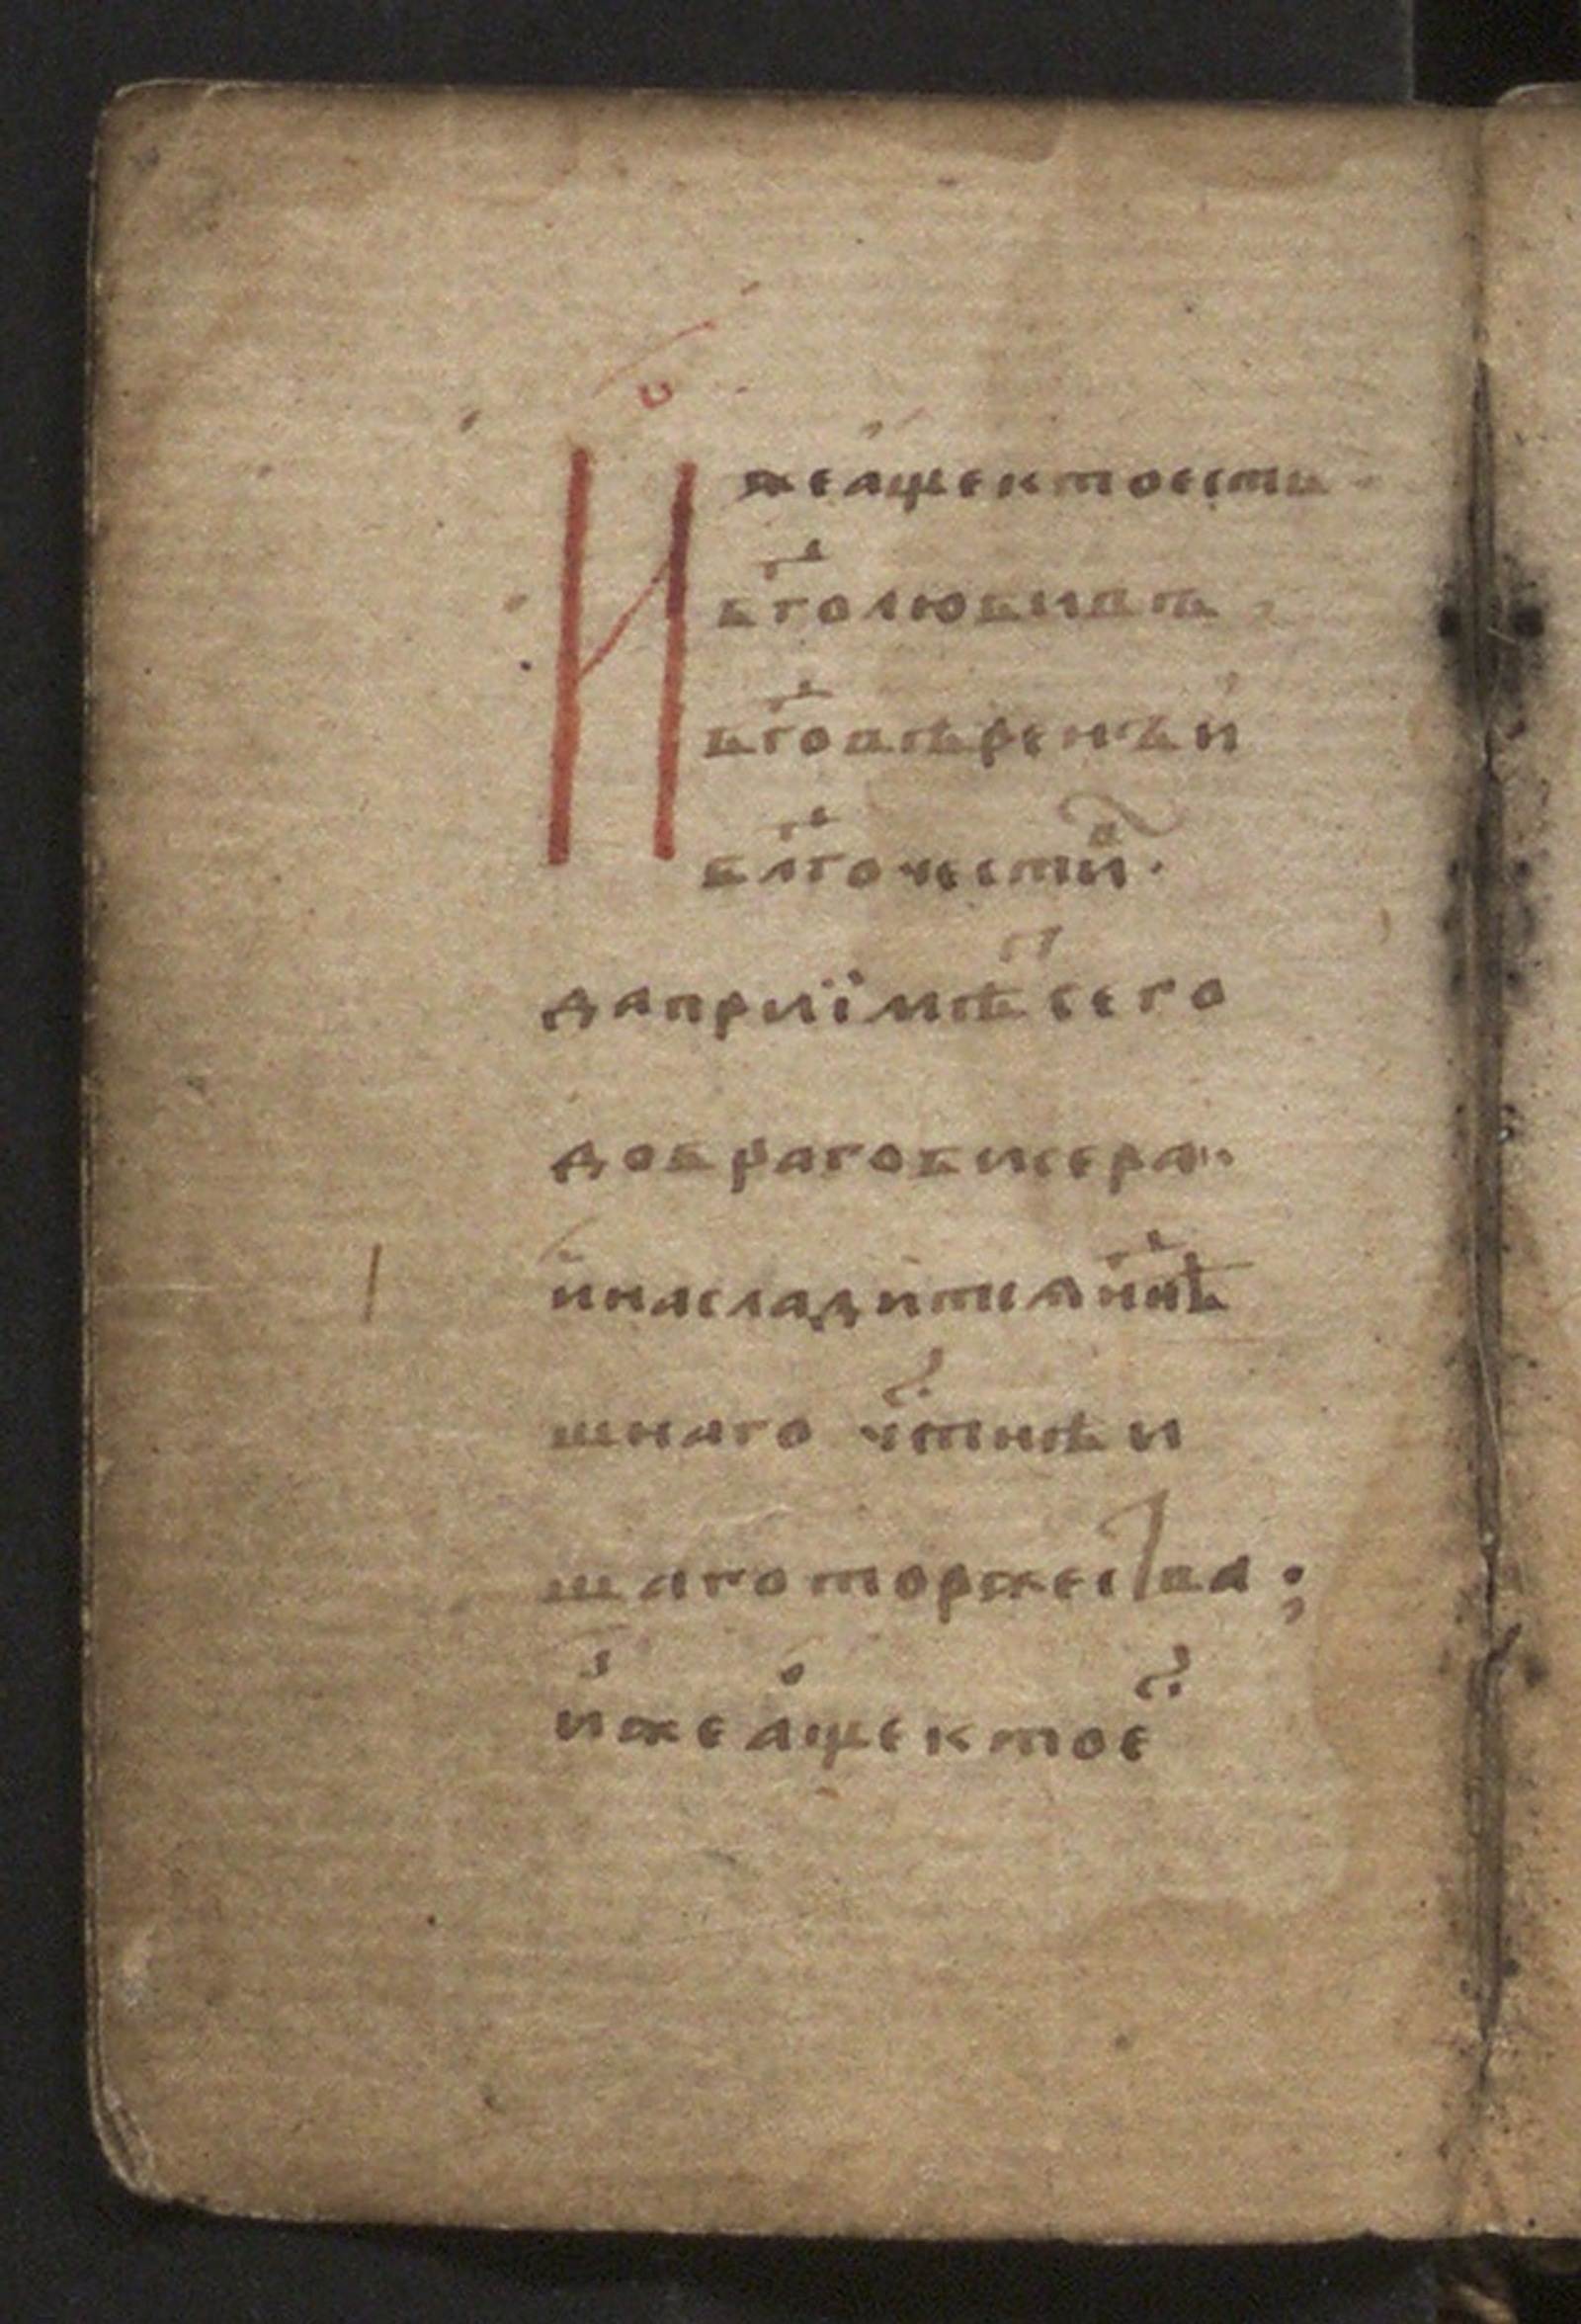 И҆жеа҆щектоесть·
бг҃олюбивъ,
бг҃овѣренъй
бл҃гочестиⷡ҇·
даприїмѣⷮсего
добрагобисера·,
инасладитсѧнн҃ѣ
шнаго чⷭ҇тнѣи
шаготоржества;
и҆жеа҆щектоеⷭ҇